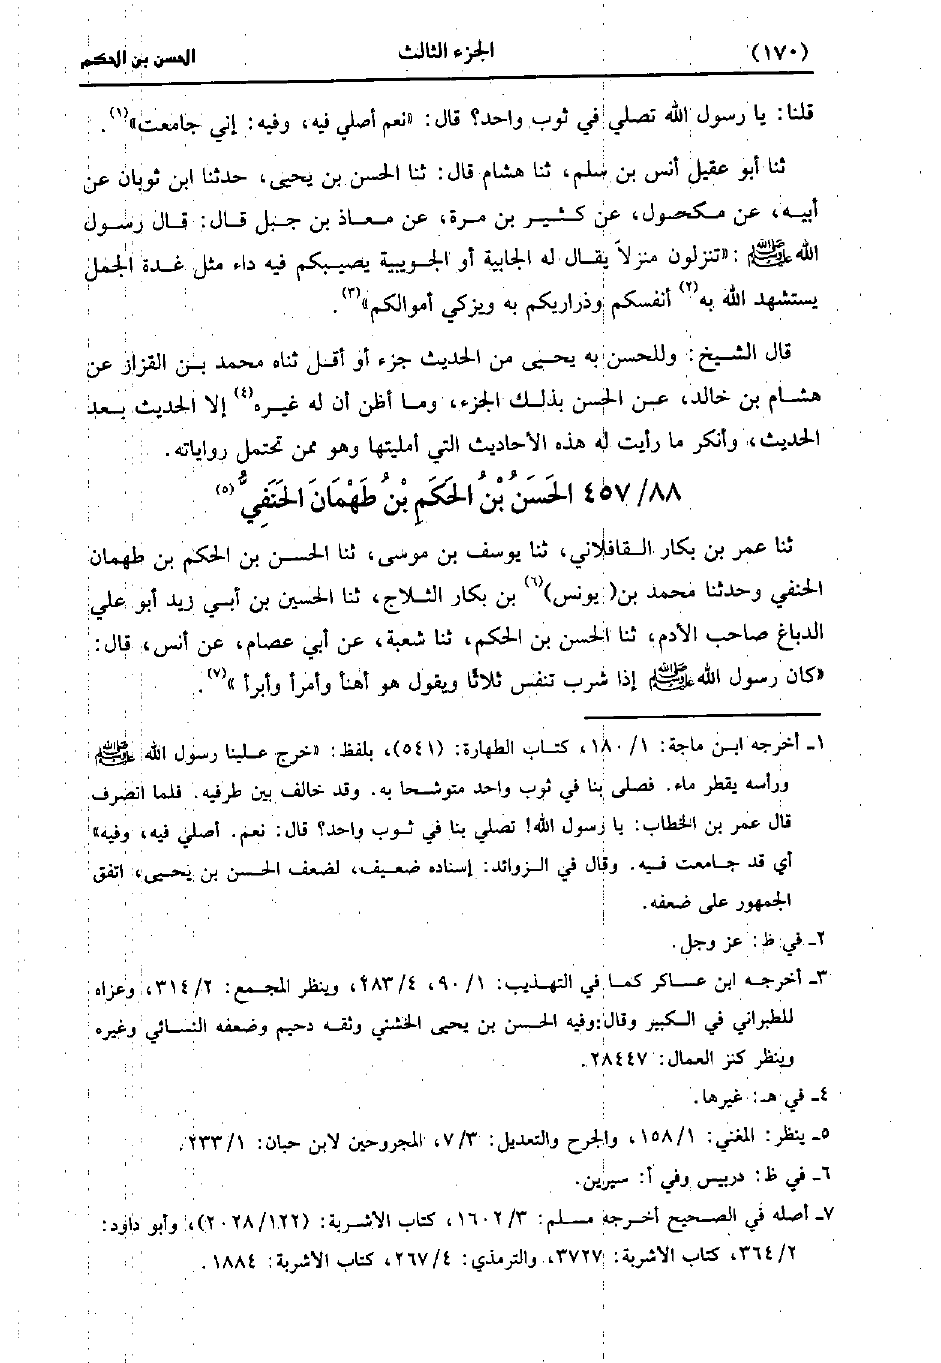 (١٧٠) الجزء الثالث الحسن بن الحكم
قلنا: يا رسول الله تصلي في ثوب واحد؟ قال: «نعم أصلي فيه، وفيه: إني جامعت»(١).
ثنا أبو عقيل أنس بن سلم، ثنا هشام قال: ثنا الحسن بن يحيى، حدثنا ابن ثوبان عن
أبيه، عن مكحول، عن كثير بن مرة، عن معاذ بن جبل قال: قال رسول
الله ﷺ: «تنزلون منزلاً يقال له الجابية أو الجويبية يصيبكم فيه داء مثل غدة الجمل
يستشهد الله به(٢) أنفسكم وذراريكم به ويزكي أموالكم»(٣).
قال الشيخ: وللحسن به يحيى من الحديث جزء أو أقل ثناه محمد بن القزاز عن
هشام بن خالد، عن الحسن بذلك الجزء، وما أظن أن له غيره(٤) إلا الحديث بعد
الحديث، وأنكر ما رأيت له هذه الأحاديث التي أمليتها وهو ممن تحتمل رواياته.
٤٥٧/٨٨ الحَسَنُ بْنُ الحَكَمِ بْنُ طَهْمَانَ الحَنَفِيُّ(٥)
ثنا عمر بن بكار القافلاني، ثنا يوسف بن موسى، ثنا الحسن بن الحكم بن طهمان
الحنفي وحدثنا محمد بن( يونس)(٦) بن بكار الثلاج، ثنا الحسين بن أبي زيد أبو علي
الدباغ صاحب الأدم، ثنا الحسن بن الحكم، ثنا شعبة، عن أبي عصام، عن أنس، قال:
«كان رسول الله ﷺ إذا شرب تنفس ثلاثًا ويقول هو أهنأ وأمرأ وأبرأ »(٧).
١ـ أخرجه ابن ماجة: ١/ ١٨٠، كتاب الطهارة: (٥٤١)، بلفظ: «خرج علينا رسول الله ﷺ
ورأسه يقطر ماء. فصلى بنا في ثوب واحد متوشحا به. وقد خالف بين طرفيه. فلما انصرف
قال عمر بن الخطاب: يا رسول الله! تصلي بنا في ثوب واحد؟ قال: نعم. أصلي فيه، وفيه»
أي قد جامعت فيه. وقال في الزوائد: إسناده ضعيف، لضعف الحسن بن يحيى، اتفق
الجمهور على ضعفه.
٢ـ في ظ: عز وجل.
٣ـ أخرجه ابن عساكر كما في التهذيب: ١/ ٩٠، ٤/ ٢٨٣، وينظر المجمع: ٢/ ٣١٤، وعزاه
للطبراني في الكبير وقال: وفيه الحسن بن يحيى الخشني وثقه دحيم وضعفه النسائي وغيره
وينظر كنز العمال: ٢٨٤٤٧.
٤ـ في هـ: غيرها.
٥ـ ينظر: المغني: ١/ ١٥٨، والجرح والتعديل: ٣/ ٧، المجروحين لابن حبان: ١/ ٢٣٣.
٦ـ في ظ: دريس وفي أ: سيرين.
٧ـ أصله في الصحيح أخرجه مسلم: ٣/ ١٦٠٢، كتاب الاشربة: (١٢٢/ ٢٠٢٨)، وأبو داود:
٢/ ٣٦٤، كتاب الاشربة: ٣٧٢٧، والترمذي: ٤/ ٢٦٧، كتاب الاشربة: ١٨٨٤.